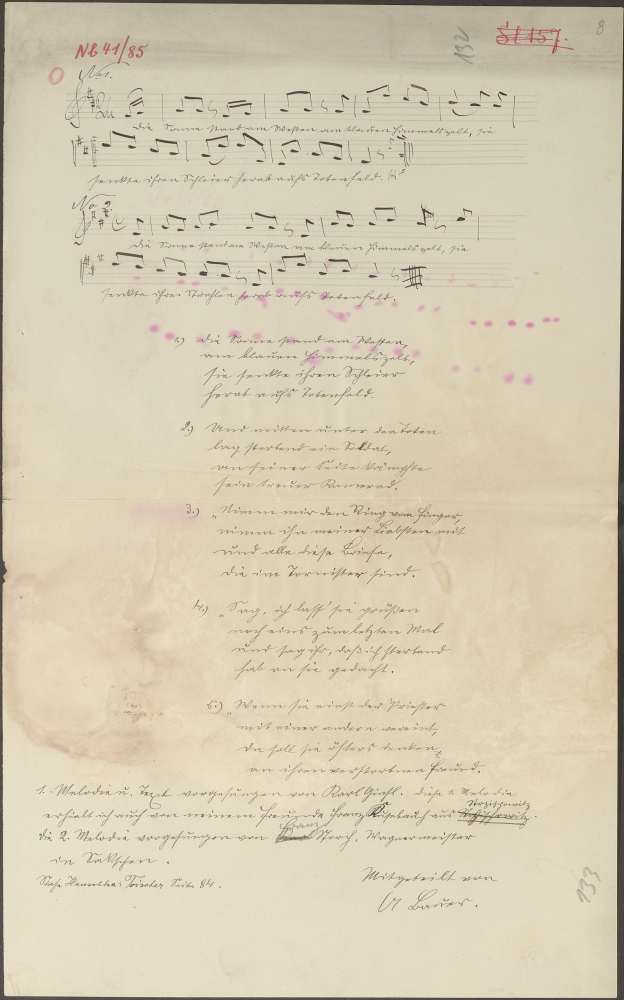 8
132
St 159.
NB 41/85
No 1.
Die Sonne stand am Westen am blauen Himmelszelt, sie
senkte ihren Schleier herab aufs Totenfeld.
No 2.
Die Sonne stand am Westen am blauen Himmelszelt, sie
senkte ihre Strahlen herab aufs Totenfeld.
1.) Die Sonne stand am Westen,
am blauen Himmelszelt,
sie senkte ihren Schleier
herab aufs Totenfeld.
2.) Und mitten unter den Toten
lag sterbend ein Soldat,
an seiner Seite kämpfte
sein treuer Kamerad.
3.) „Nimm mir den Ring vom Finger,
nimm ihn meiner Liebsten mit
und alle diese Briefe,
die im Tornister sind.
4.) „Sag, ich lass' sie grüßen
noch eins zum letzten Mal
und sag ihr, daß ich sterbend
hab an sie gedacht.
5.) „Wenn sie einst der Priester
mit einer andern vereint,
da soll sie öfters denken,
an ihren verstorbnen Freund.
1. Melodie u. Text vorgesungen von Karl diese 1. Melodie
erhielt ich auch von meinem Freunde Franz aus
die 2. Melodie vorgesungen von Franz Storch, Wagnermeister
in
Siehe Seite 84.
Mitgeteilt von
Bauer.
133